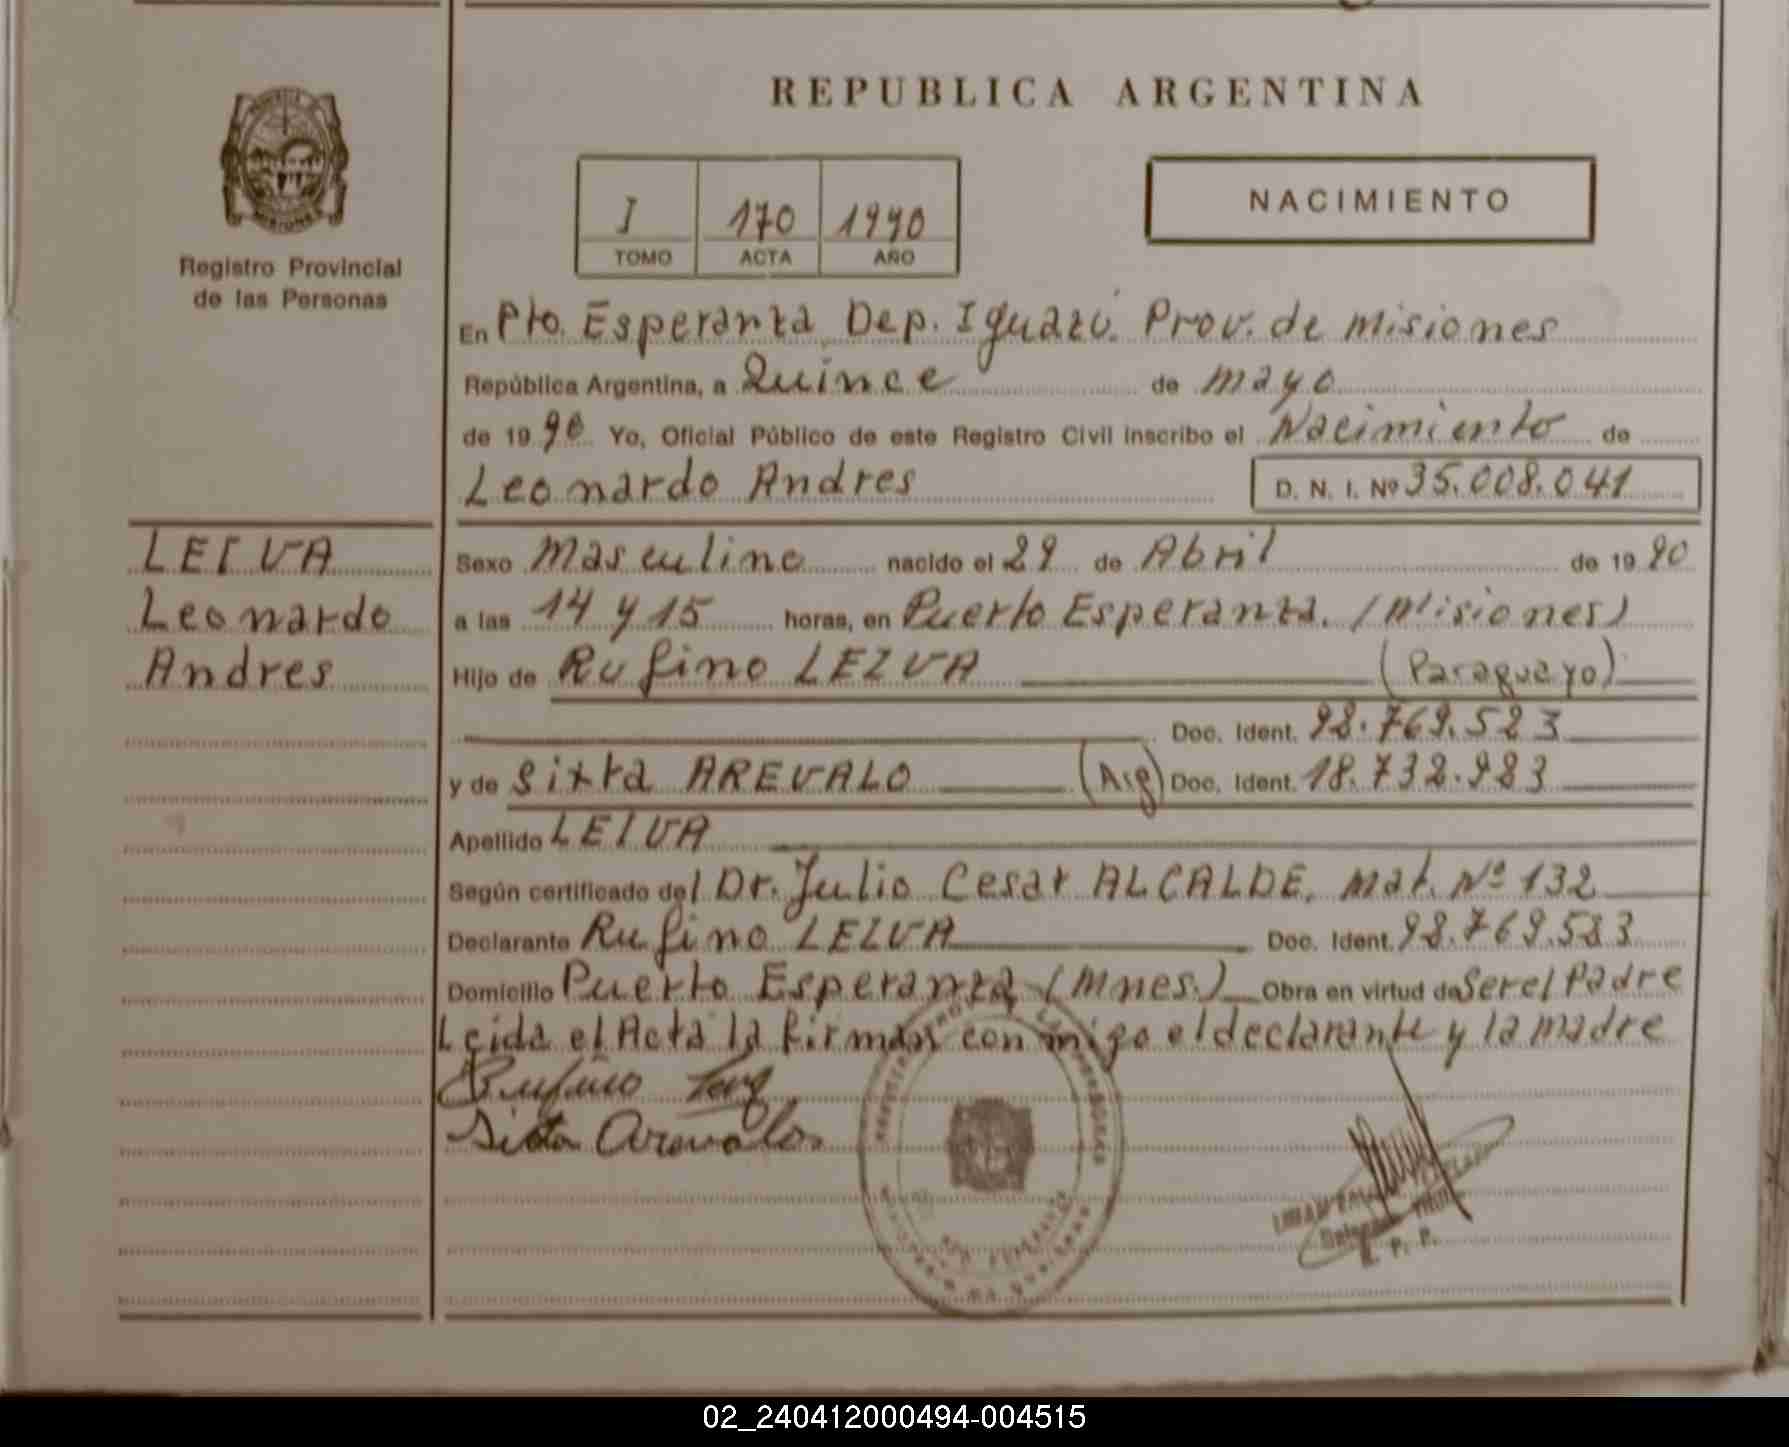 REPUBLICA ARGENTINA
NACIMIENTO
I 170 1990
TOMO ACTA AÑO
Registro Provincial
de las Personas
En Pto. Esperanza Dep. Iguazú. Prov. de Misiones
República Argentina, a Quince de mayo
de 19 90 Yo, Oficial Público de este Registro Civil inscribo el Nacimiento de
Leonardo Andres D. N. I. Nº 35.008.041
LEIVA
Leonardo
Andres
Sexo Masculino nacido el 29 de Abril de 19 90
a las 14 y 15 horas, en Puerto Esperanza. (Misiones)
Hijo de Rufino LEIVA (Paraguayo)
Doc. Ident. 92.769.523
y de Sixta AREVALO (Arg) Doc. Ident. 18.732.983
Apellido LEIVA
Según certificado del Dr. Julio Cesar ALCALDE, Mat. Nº 132
Declarante Rufino LEIVA Doc. Ident. 92.769.523
Domicilio Puerto Esperanza (Mnes.) Obra en virtud de Ser el Padre
Leida el Acta la firman con migo el declarante y la madre
Rufino
Sixta Arevalo
R. P. P.
02_240412000494-004515